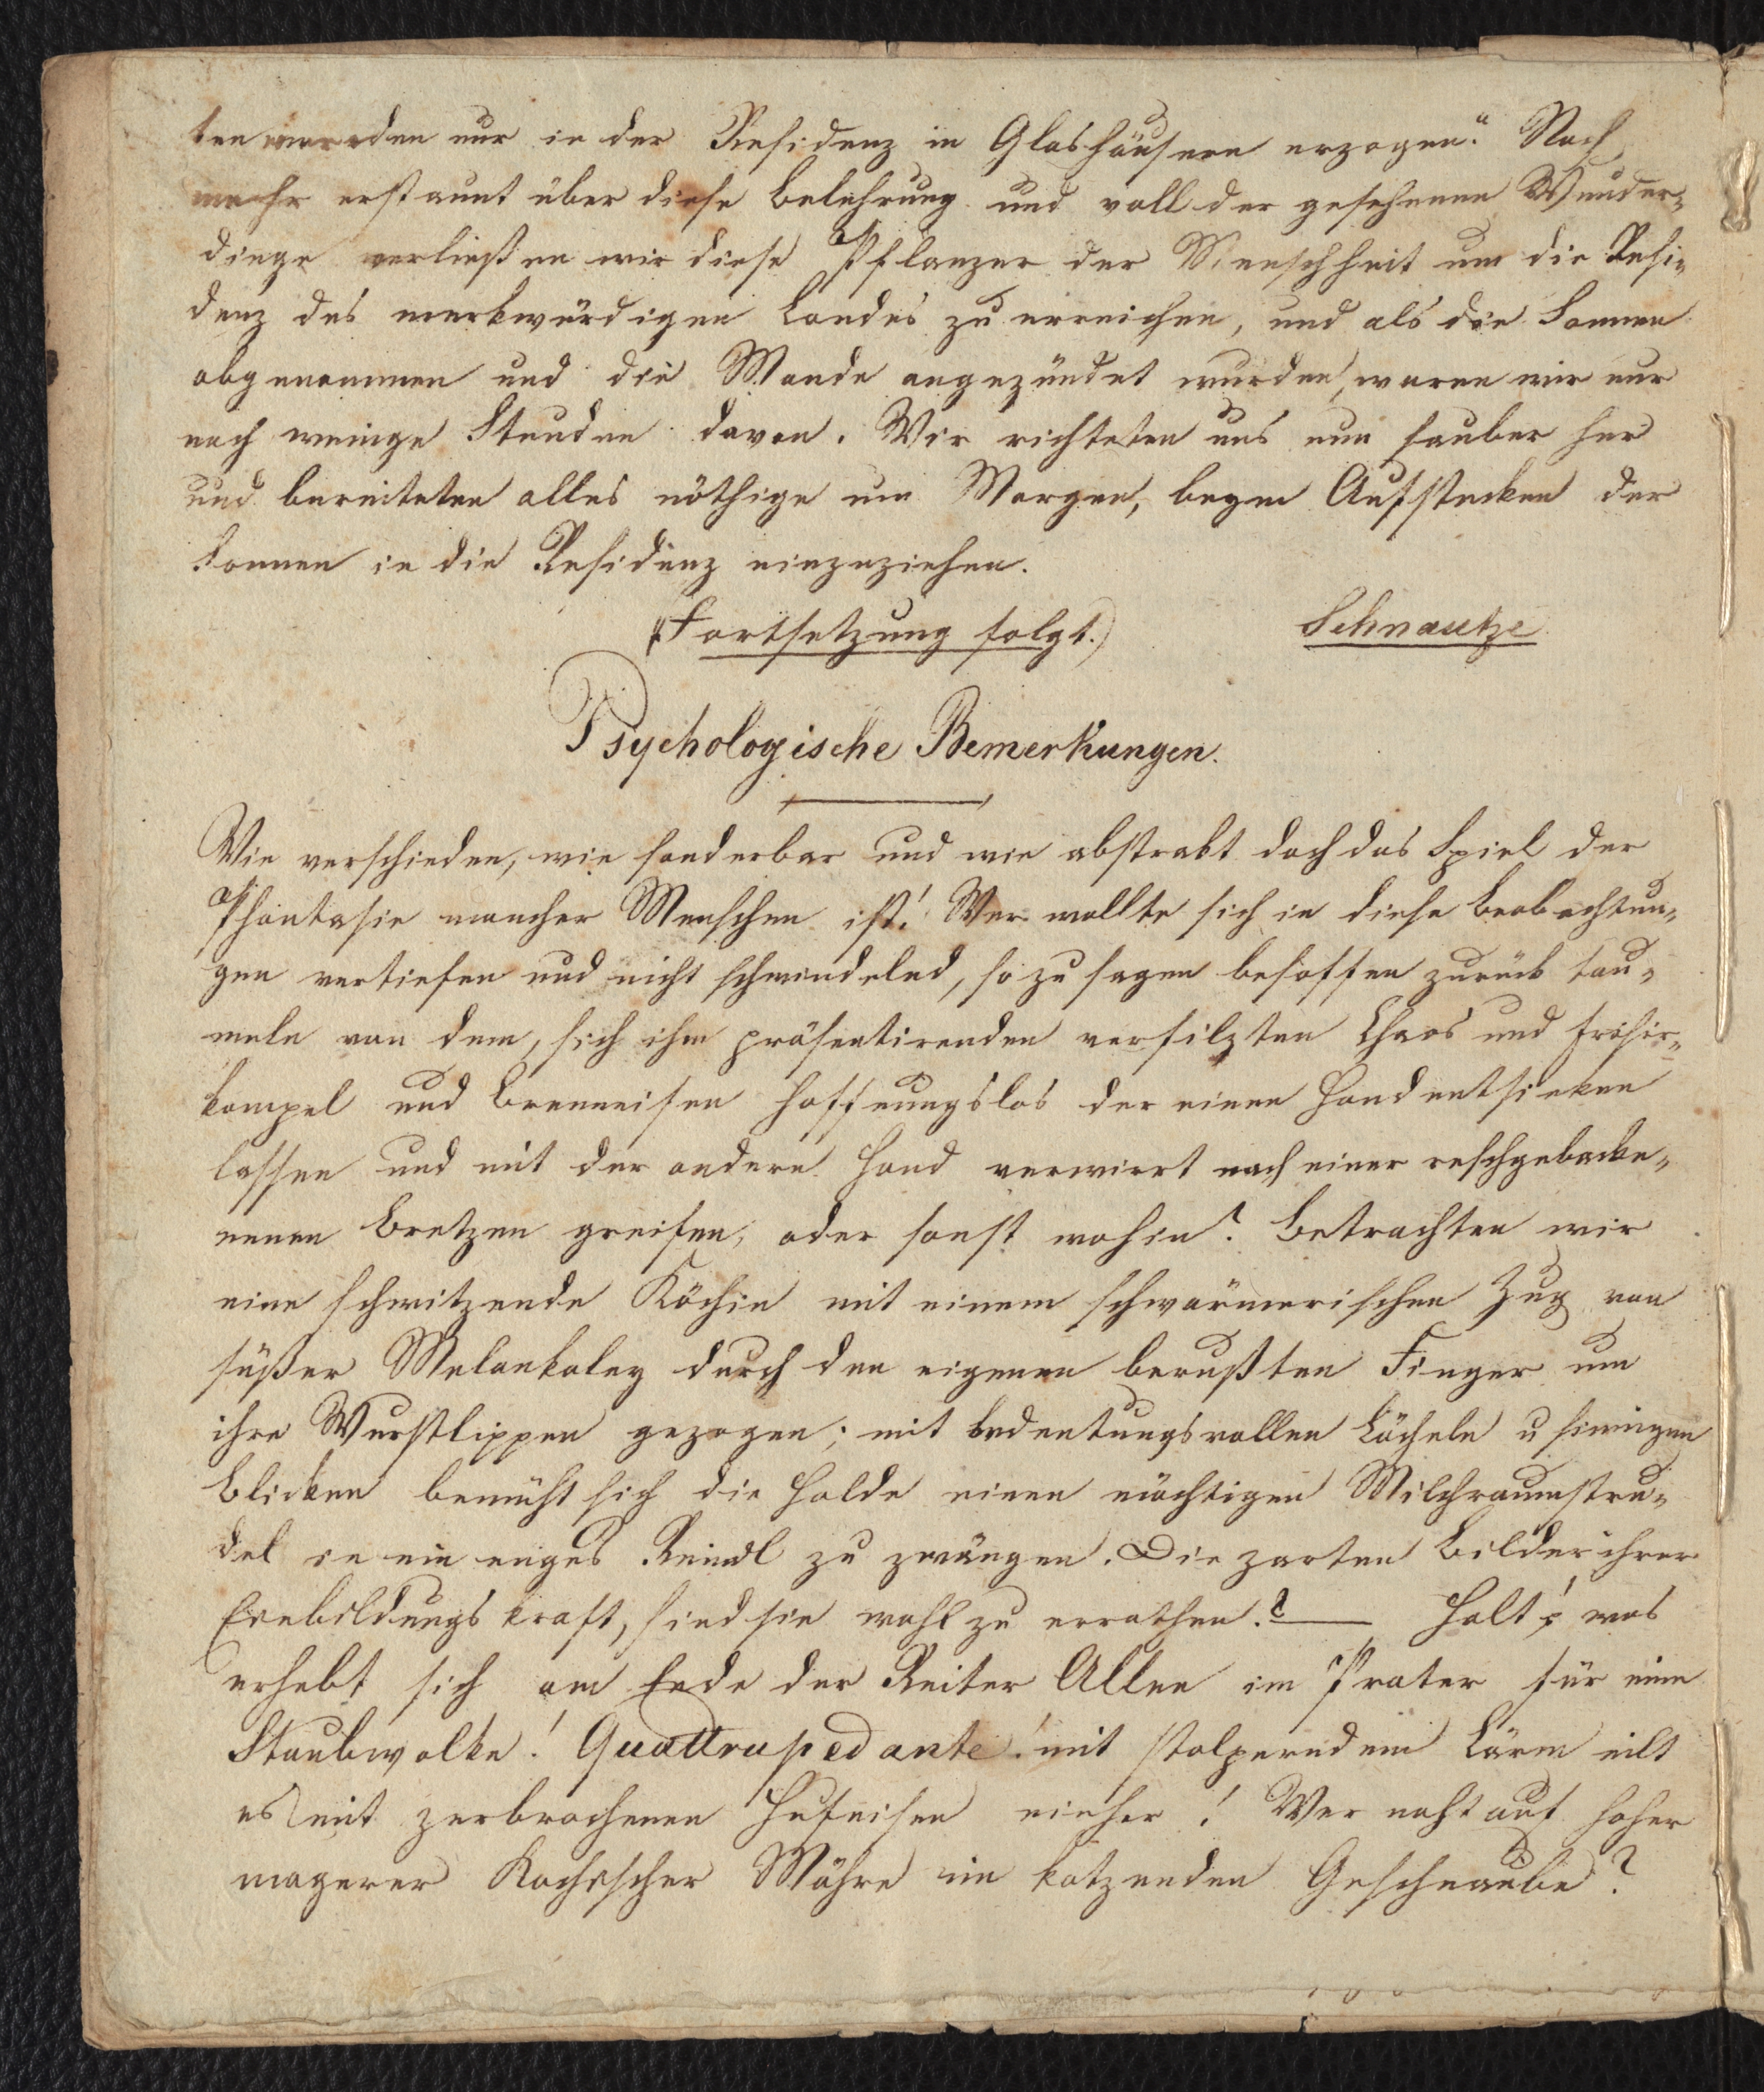 ten werden nur in der Residenz in Glashäusern erzogen." Noch
mehr erstaunt über diese Belehrung und voll der gesehenen Wunder-
dinge verließen wir diese Pflanzer der Menschheit um die Resi-
denz des merkwürdigen Landes zu erreichen, und als die Sonnen
abgenommen und die Monde angezündet wurden, waren wir nur
noch wenige Stunden davon. Wir richteten uns nun sauber her
und bereiteten alles nöthige um Morgen, beym Aufstecken der
Sonnen in die Residenz einzuziehen.
(Fortsetzung folgt.) Schnautze
Psychologische Bemerkungen.
Wie verschieden, wie sonderbar und wie abstrakt doch das Spiel der
Phantasie mancher Menschen ist! Wer wollte sich in diese Beobachtun-
gen vertiefen und nicht schwindelnd, so zu sagen besoffen zurück tau-
meln von dem, sich ihm präsentirenden verfilzten Chaos und Frisir-
kampel und Brenneisen hoffnungslos der einen Hand entsinken
lassen und mit der andern Hand verwirrt nach einer reschgebacke-
nenen Bretzen greifen, oder sonst wohin? Betrachten wir
eine schwitzende Köchin mit einem schwärmerischen Zug von
süßer Melankoley durch den eigenen berußten Finger um
ihre Wurstlippen gezogen; mit bedeutungsvollen Lächeln u sinnigen
Blicken bemüht sich die Holde einen mächtigen Milchraumstru-
del in ein enges Reindl zu zwängen. Die zarten Bilder ihrer
Einbildungskraft, sind sie wohl zu errathen? — Halt! was
erhebt sich am Ende der Reiter Allee im Prater für eine
Staubwolke! Quattrupedante! mit stolperndem Lärm eilt
es mit zerbrochenen Hufeisen einher! Wer naht auf hoher
magerer Mähre im kotzenden Geschnaube?